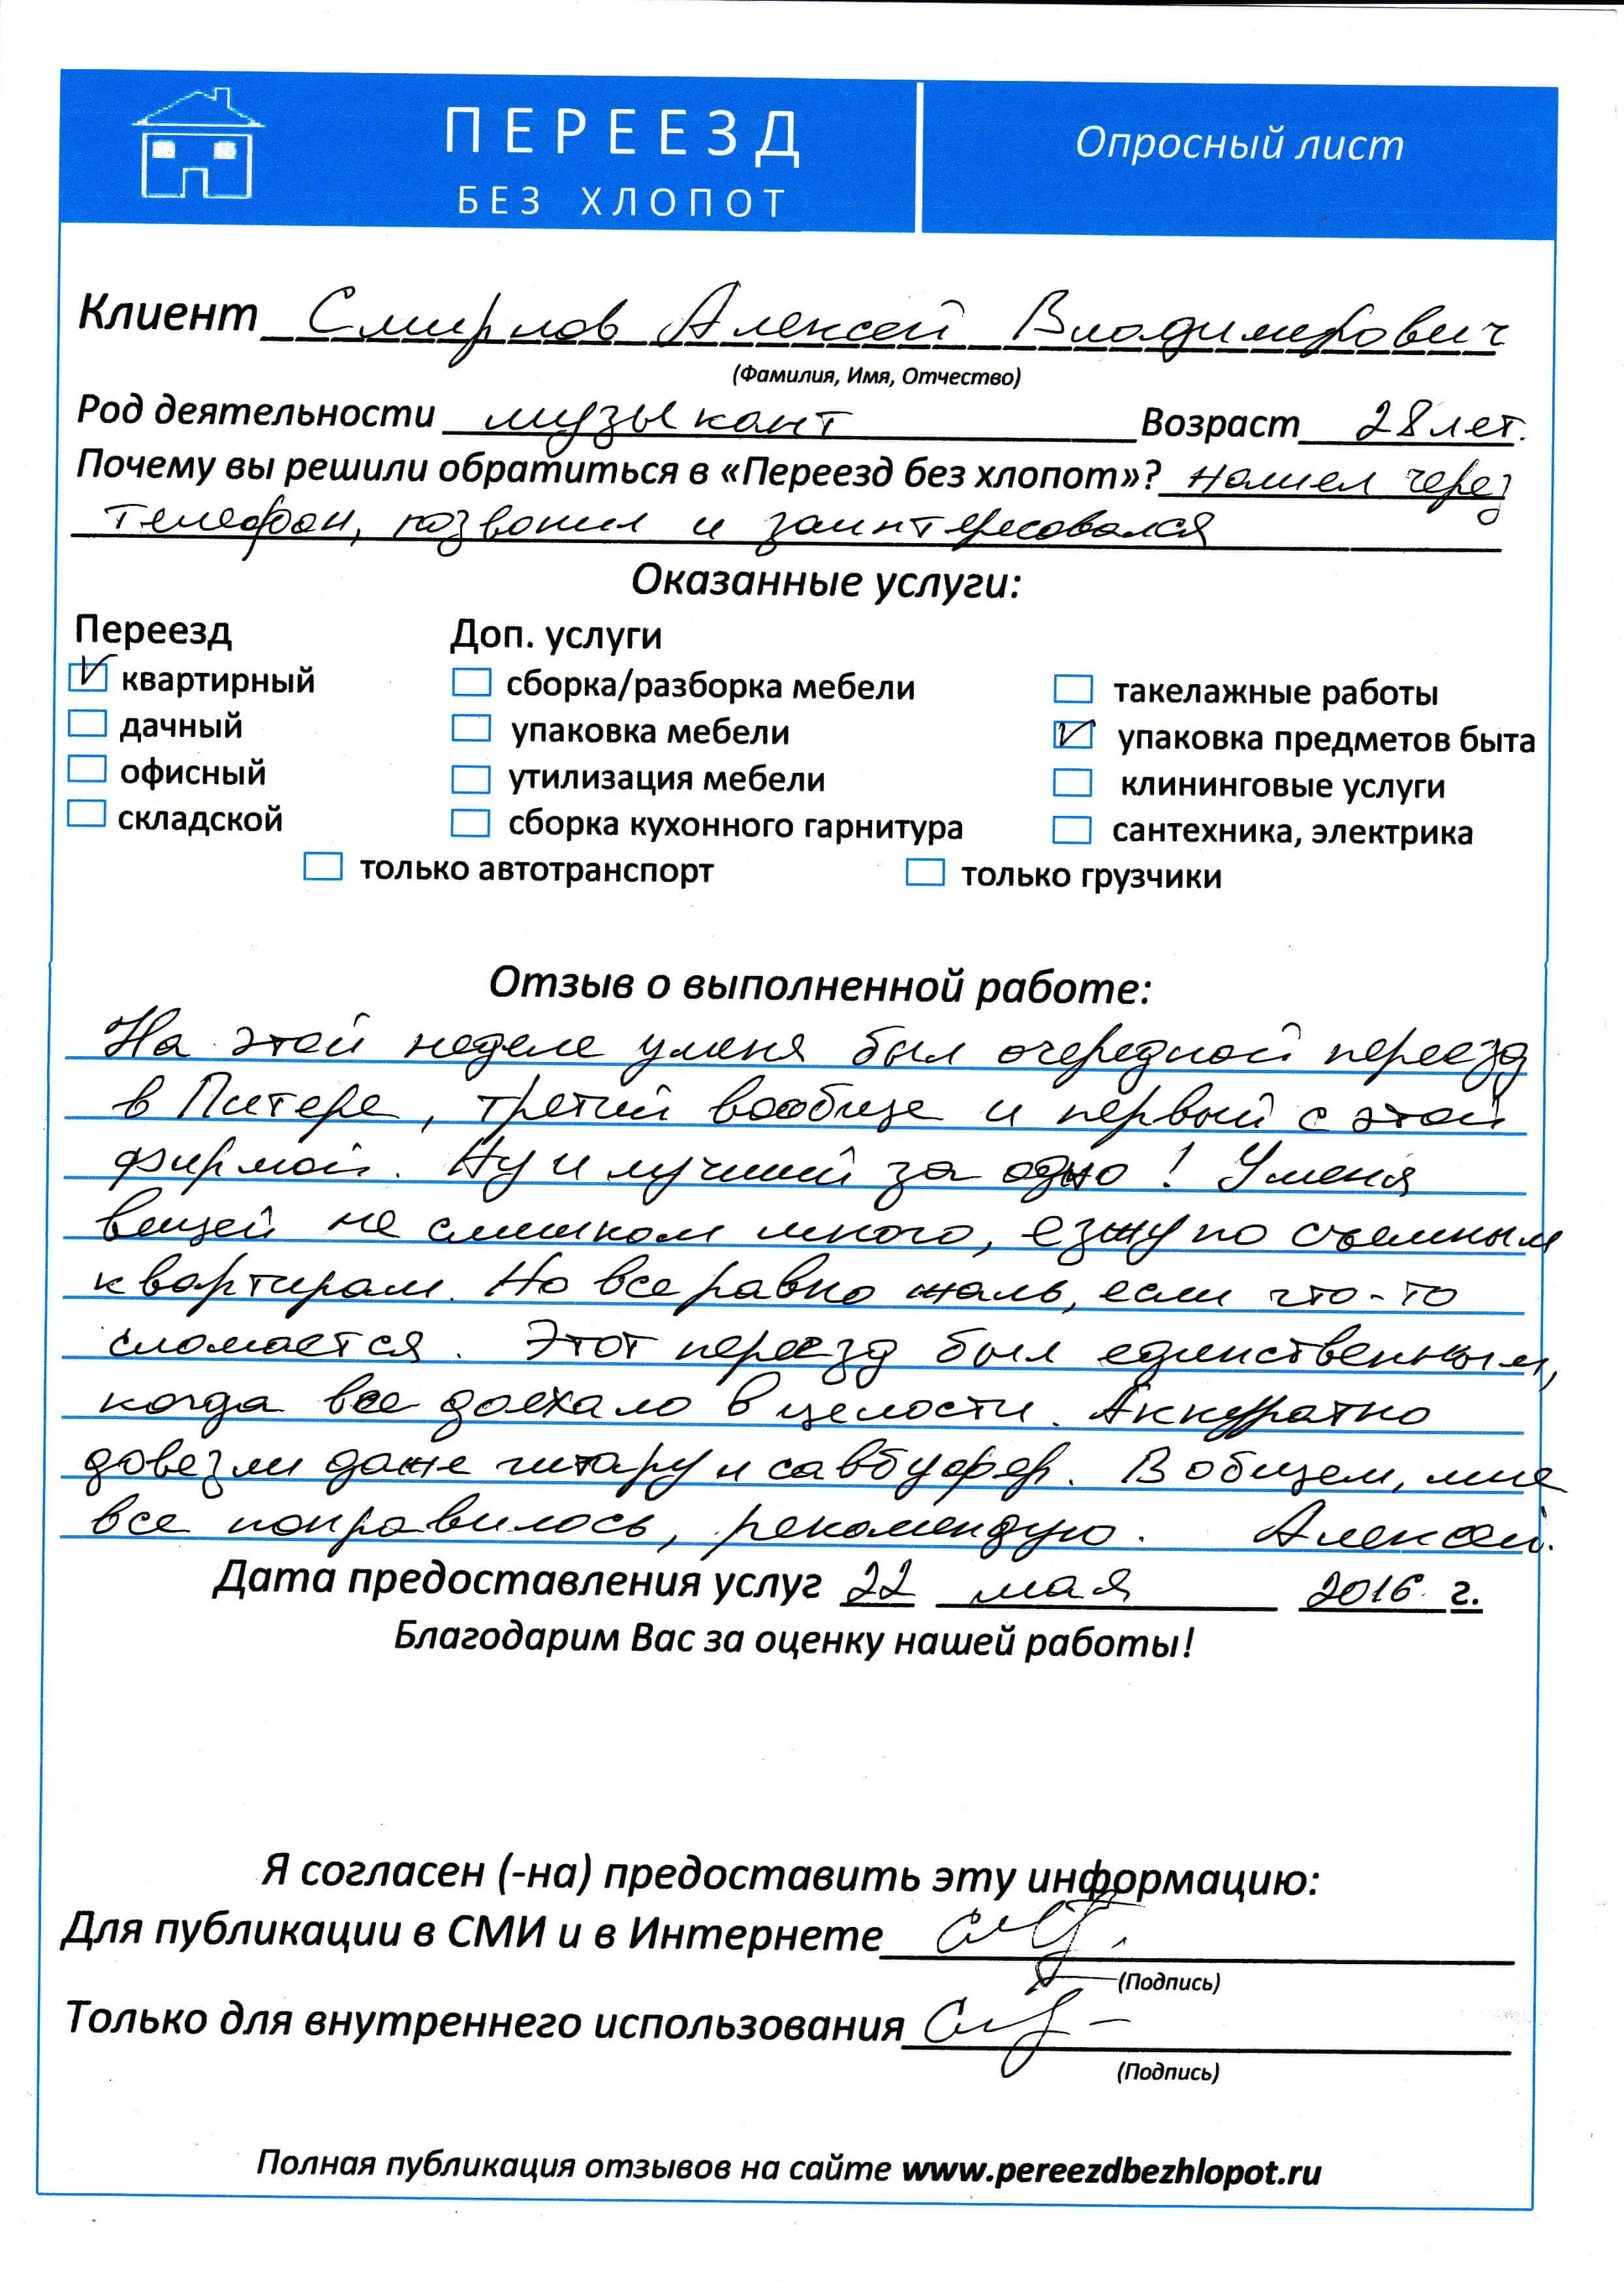 ПЕРЕЕЗД
БЕЗ ХЛОПОТ
Опросный лист
Клиент Смирнов Алексей Владимирович
(Фамилия, Имя, Отчество)
Род деятельности музыкант Возраст 28 лет.
Почему вы решили обратиться в «Переезд без хлопот»? нашел через
телефон, позвонил и заинтересовался
Оказанные услуги:
Переезд Доп. услуги
квартирный сборка/разборка мебели такелажные работы
дачный упаковка мебели упаковка предметов быта
офисный утилизация мебели клининговые услуги
складской сборка кухонного гарнитура сантехника, электрика
только автотранспорт только грузчики
Отзыв о выполненной работе:
На этой неделе у меня был очередной переезд
в Питере, третий вообще и первый с этой
фирмой. Ну и лучший за одно! У меня
вещей не слишком много, езжу по съемным
квартирам. Но все равно жаль, если что-то
сломается. Этот переезд был единственным,
когда все доехало в целости. Аккуратно
довезли даже гитару и савбуфер. В общем, мне
все понравилось, рекомендую. Алексей.
Дата предоставления услуг 22 мая 2016 г.
Благодарим Вас за оценку нашей работы!
Я согласен (-на) предоставить эту информацию:
Для публикации в СМИ и в Интернете
(Подпись)
Только для внутреннего использования
(Подпись)
Полная публикация отзывов на сайте www.pereezdbezhlopot.ru